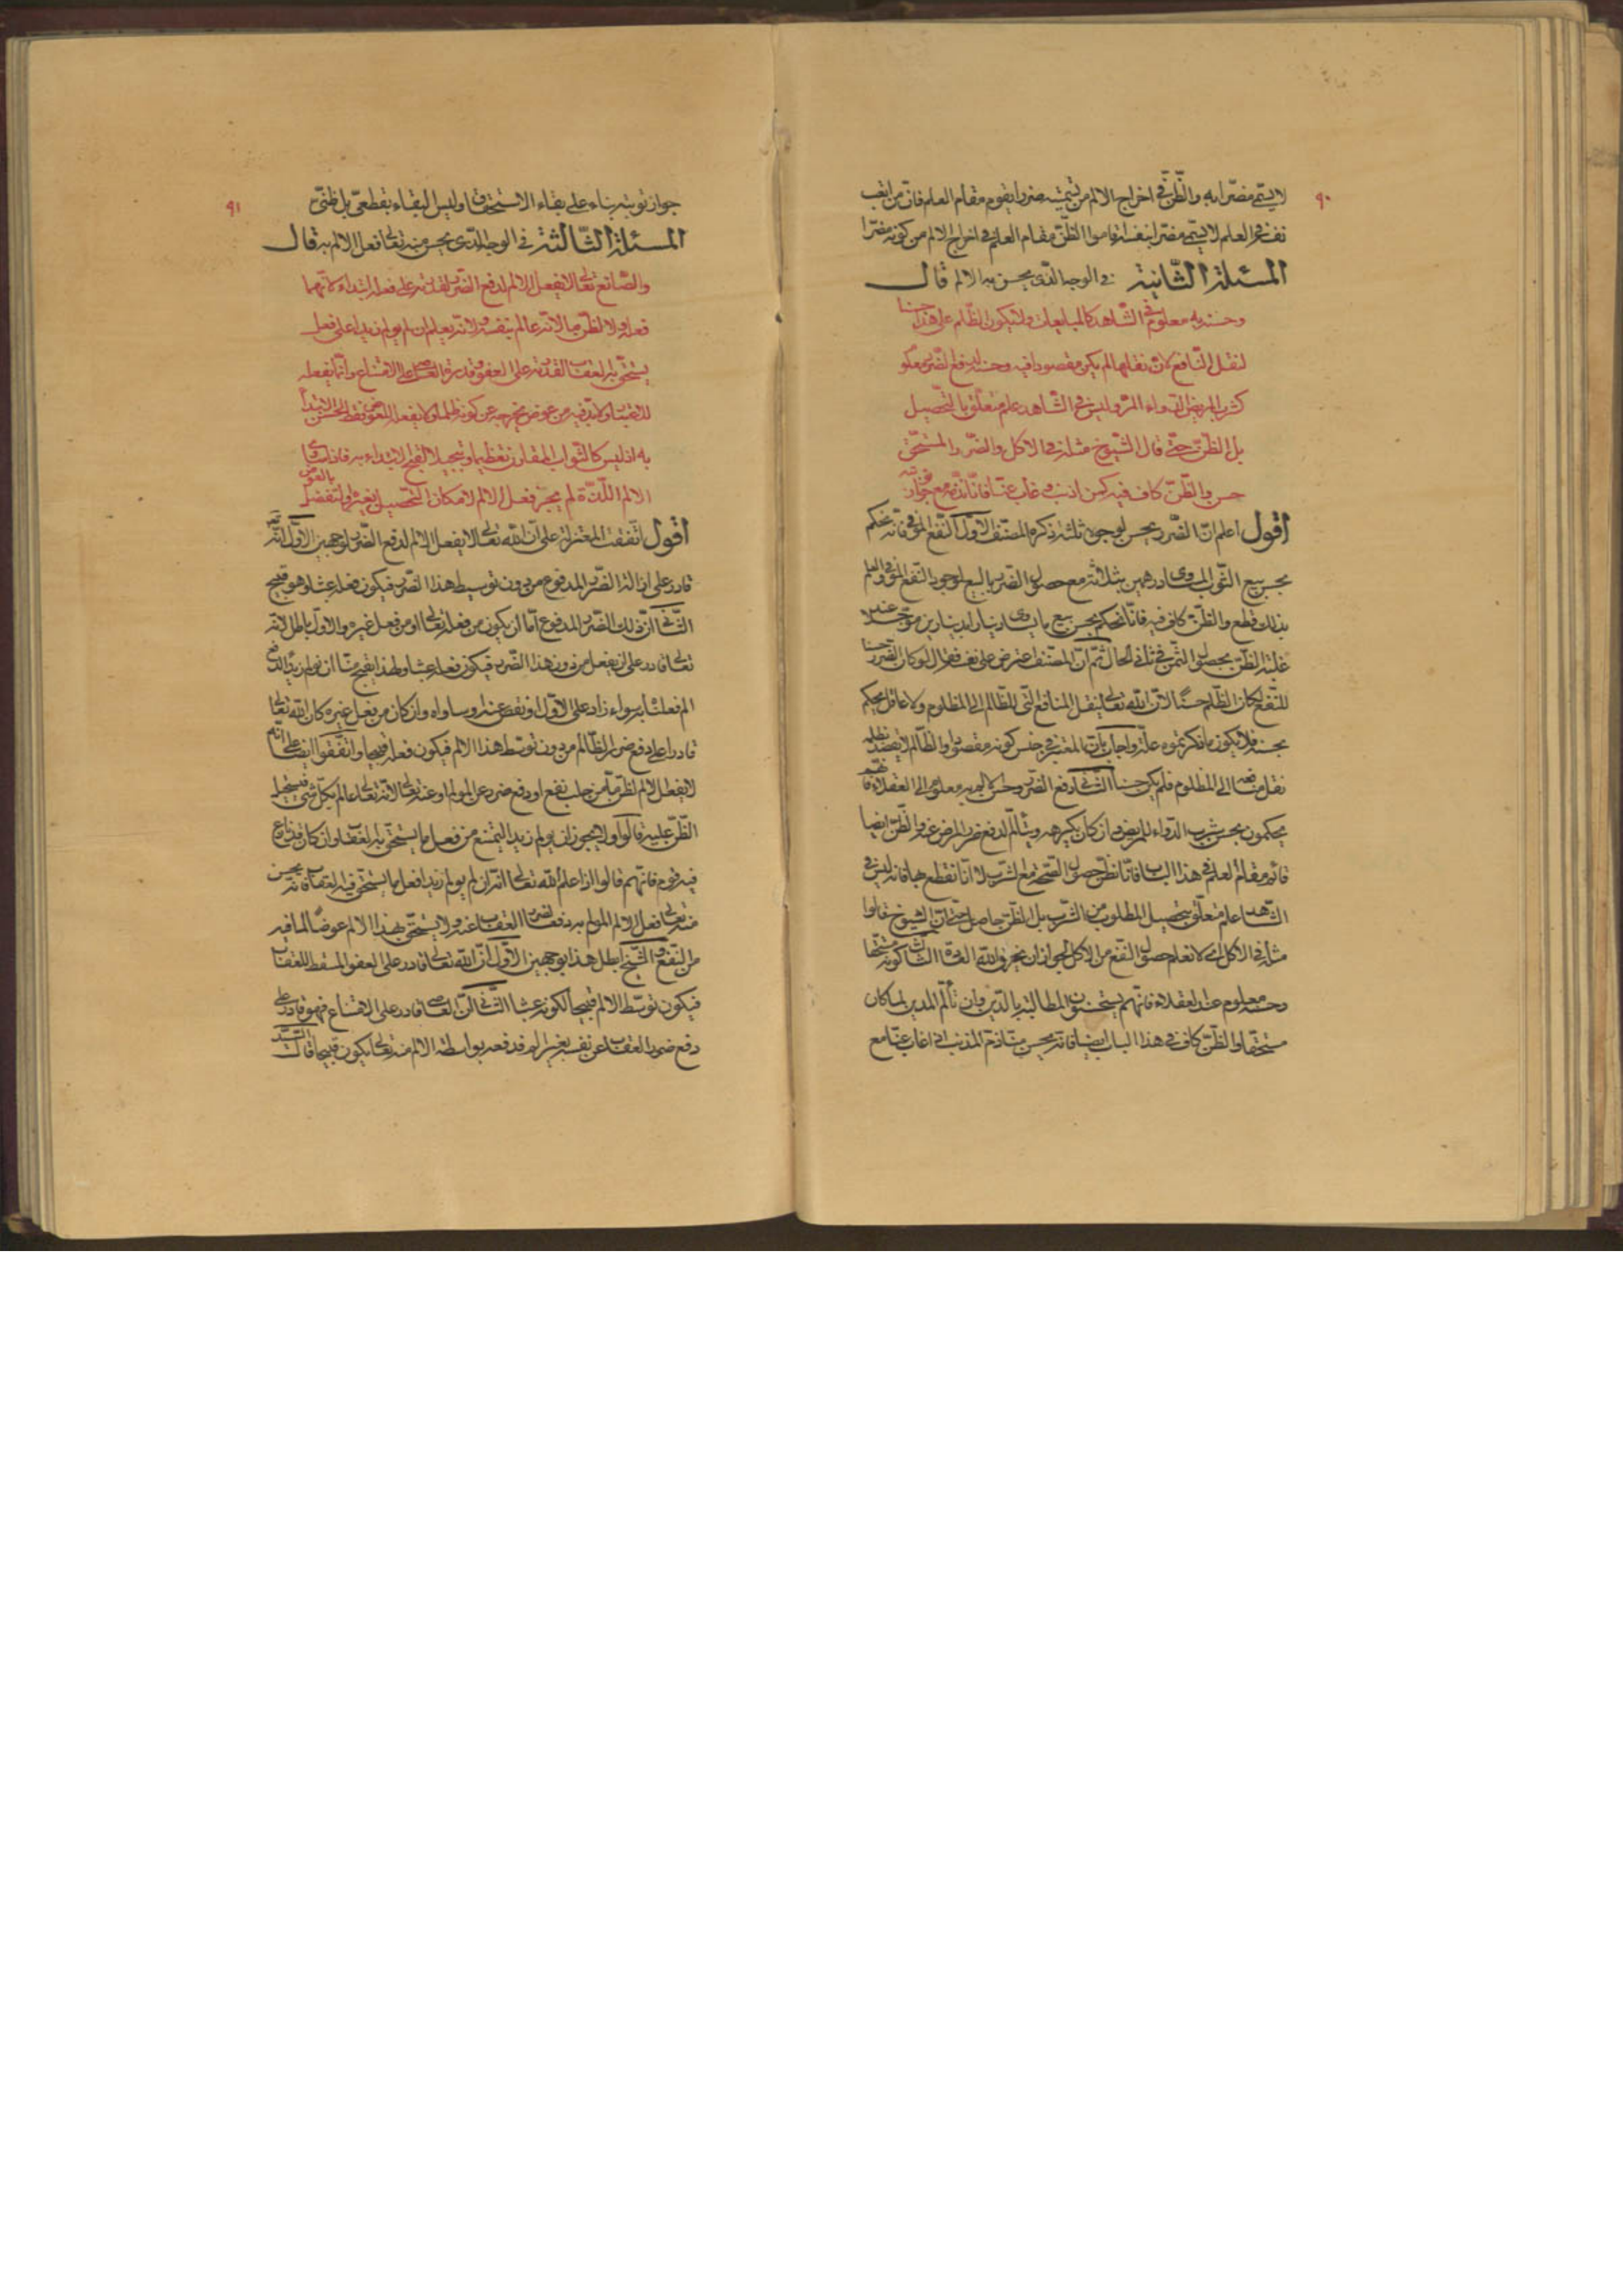 ٩٠
لا يسمى مضرا به والظن في اخراج الالم من تسميته ضررا يقوم مقام العلم فان من اتعب
نفسه في العلم لا يسمى مضرا بنفسه اقاموا الظن مقام العلم في اخراج الالم من كونه مضرا
المسئلة الثانية في الوجه الذى يحسن به الالم قال
وحسنه به معلوم في الشاهد كالمبايعات ولا يكون الظلم على هذا حسنا
لنقل النافع لان نقلها لم يكن مقصودا فيه وحسنه لدفع الضرر معلوم
كشرب المريض الدواء المر وليس في الشاهد علم متعلق بالتحصيل
بل الظن حتى قال الشيوخ مثله في الاكل والضرر المستحق
حسن والظن كاف فيه كمن اذنب وغاب عنا فانا نذمه مع جواز توبته
اقول اعلم ان الضرر يحسن لوجوه ثلثة ذكره المصنف الاول النفع الموفى فانه نحكم
بحسن بيع الثوب المساوى درهمين بثلاثة مع حصول الضرر بالبيع لوجود النفع الموفى والعلم
بذلك قطع والظن كاف فيه فانا نحكم بحسن بيع ما يساوى دينارا بدينارين مؤجلا عند
غلبة الظن بحصول الثمن في ثانى الحال ثم ان المصنف اعترض على نفسه فقال لو كان الضرر حسنا
للنفع لكان الظلم حسنا لان الله تعالى ينقل المنافع التى للظالم الى المظلوم ولا عاقل يحكم
بحسنه فلا يكون ما ذكرتموه علة واجاب بان المعتبر في حسن كونه مقصودا والظالم لا يقصد بظلمه
نقل منافعه الى المظلوم فلم يكن حسنا الثانى دفع الضرر وحسن الالم به معلوم الى العقلاء فانهم
يحكمون بحسن شرب الدواء للمريض وان كان يكرهه ويتألم لدفع ضرر المرض عنه والظن ايضا
قائم مقام العلم في هذا الباب فانا نظن حصول الصحة مع الشرب لا انا نقطع بها فانه ليس في
الشاهد علم متعلق بتحصيل المطلوب من الشرب بل الظن حاصل حتى ان الشيوخ قالوا
مثله في الاكل اى لا نعلم حصول النفع من الاكل لجواز ان يخرق الله العادة الثالث كونه مستحقا
وحسنه معلوم عند العقلاء فانهم يستحسنون المطالبة بالدين وان تألم المدين لما كان
مستحقا والظن كاف في هذا الباب ايضا فانه يحسن منا ذم المذنب اذا غاب عنا مع
٩١
جواز توبته بناء على بقاء الاستحقاق وليس البقاء بقطعى بل ظنى
المسئلة الثالثة في الوجه الذى يحسن منه تعالى فعل الالم به قال
والصانع تعالى لا يفعل الالم لدفع الضرر لقدرته على فعله ابتداء كانهما
فعله ولا لظن ما لانه عالم بنفسه ولانه يعلم ان لم يولم زيدا على فعل
يستحق به العقاب لقدرته على العفو وقدرة العاصى على الامتناع وانما يفعله
للاعتبار ولا بد فيه من عوض يخرجه عن كونه ظلما ولا يفعل للعوض فقط لحسن الابتداء
به اذ ليس كالثواب المقارن تعظيما وتبجيلا لقبح الابتداء به فاذا ساوى
الالم اللذة لم يجز فعل الالم لامكان التحصيل بغيره او لتفضل بالعوض
اقول اتفقت المعتزلة على ان الله تعالى لا يفعل الالم لدفع الضرر لوجهين الاول انه
قادر على ازالة الضرر المدفوع من دون توسيط هذا الضرر فيكون فعله عبثا وهو قبيح
الثانى ان ذلك الضرر المدفوع اما ان يكون من فعله تعالى او من فعل غيره والاول باطل لانه
تعالى قادر على ان يفعل من دون هذا الضرر فيكون فعله عبثا ولهذا يقبح منا ان نولم زيدا لدفع
الم فعلناه سواء زاد على الاول او نقص عنه او ساواه وان كان من فعل غيره كان الله تعالى
قادرا على دفع ضرر الظالم من دون توسط هذا الالم فيكون فعله قبيحا واتفقوا ايضا على انه
لا يفعل الالم لظن ما من جلب نفع او دفع ضرر عن المولم او عنه تعالى لانه تعالى عالم بكل شئ فيستحيل
الظن عليه قالوا ولا يجوز ان يولم زيدا ليمتنع من فعل ما يستحق به العقاب وان كان قد نازع
فيه قوم فانهم قالوا اذا علم الله تعالى انه ان لم يولم زيدا فعل ما يستحق فيه العقاب فانه يحسن
منه تعالى فعل الالم المولم به دفعا لضرر العقاب عنه ولا يستحق بهذا الالم عوضا لما فيه
من النفع والشيخ ابطل هذا بوجهين الاول ان الله تعالى قادر على العفو المسقط للعقاب
فيكون توسط الالم قبيحا لكونه عبثا الثانى ان العاصى قادر على الامتناع فهو قادر على
دفع ضرر العقاب عن نفسه بغير الم فدفعه بواسطة الالم منه تعالى يكون قبيحا قال السيد